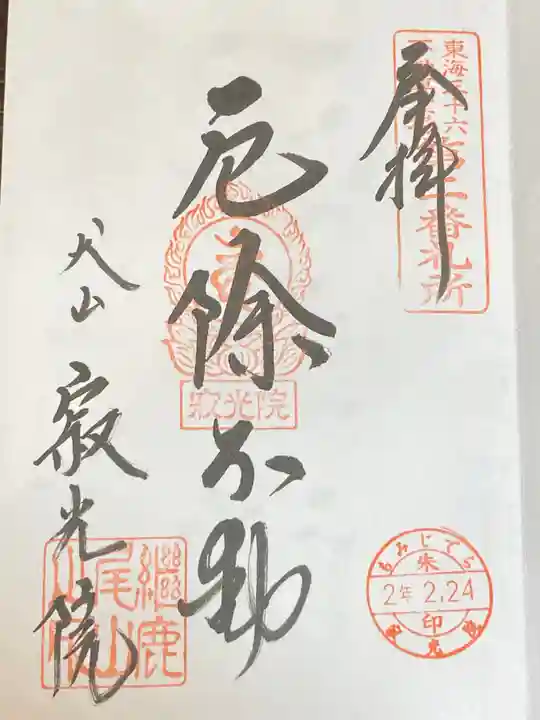 奉拝
東海三十六
第二番札所
厄除不動
寂光院
犬山
寂光院
継鹿
尾山
もみじでら
朱
2年2.24
印